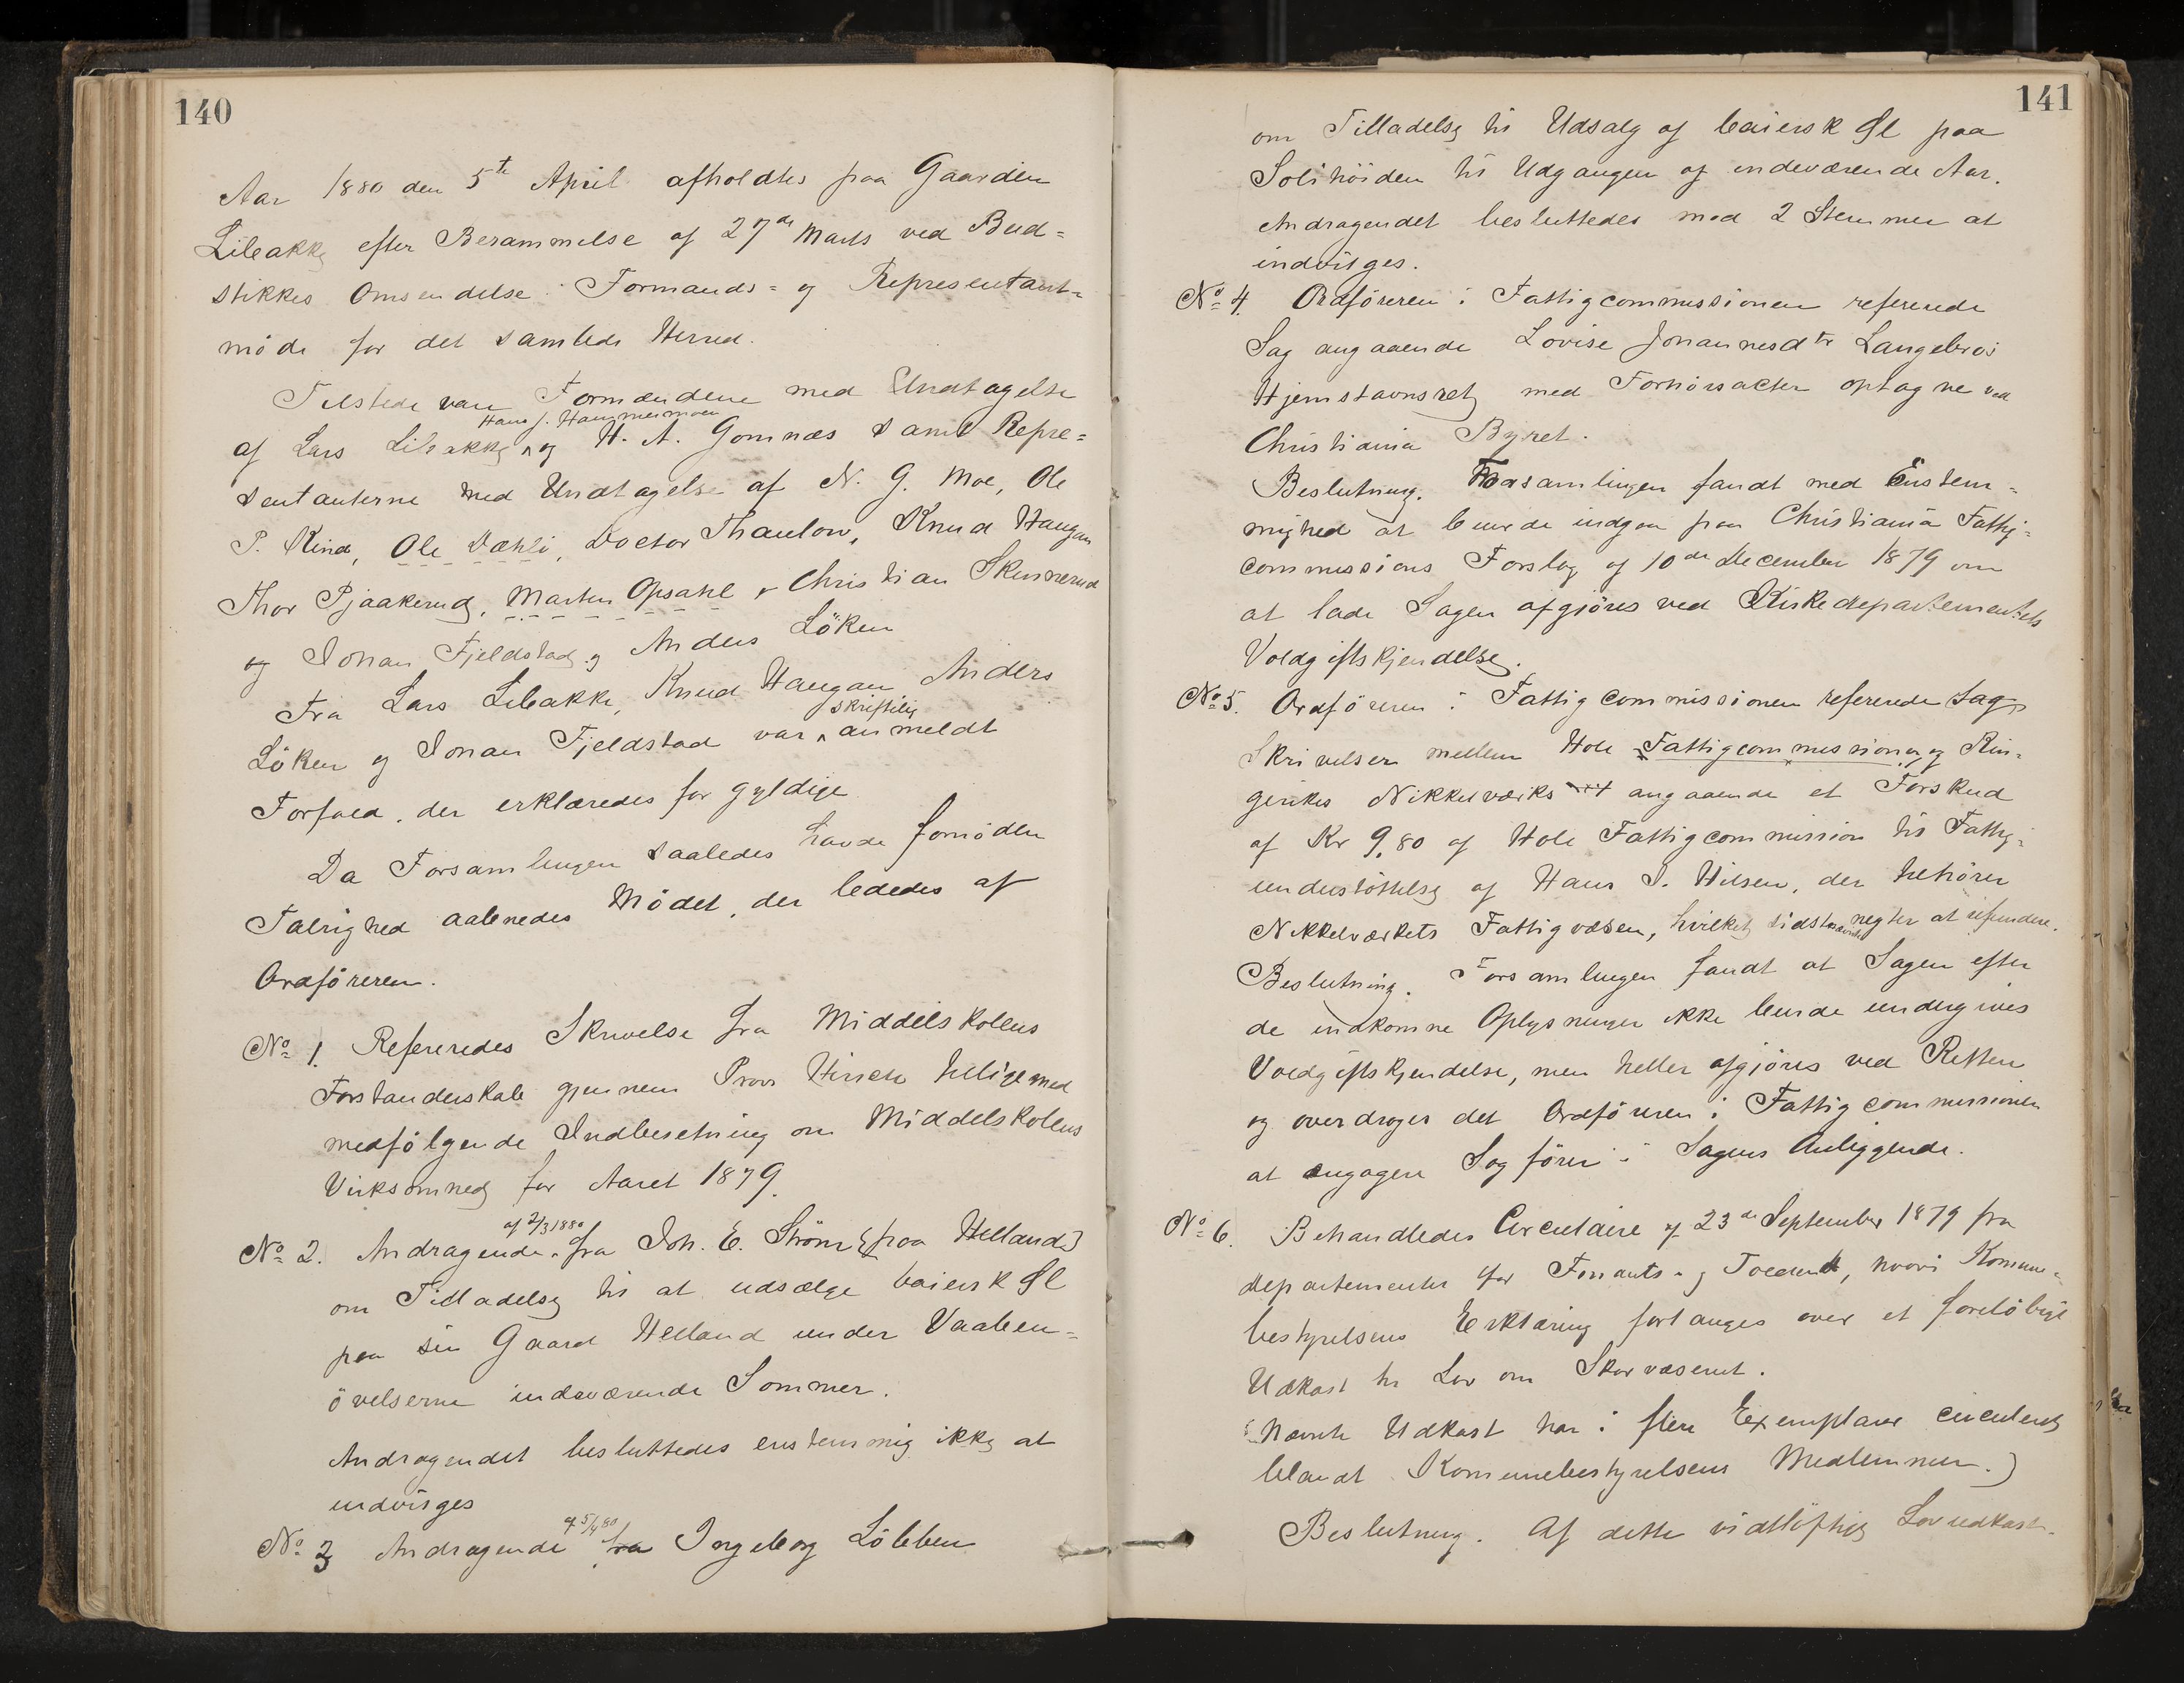 140
Aar 1880 den 5te April afholdtes paa Gaarden
Libakke efter Berammelse af 27de Marts ved Bud=
stikkes Omsendelse Formands= og Representant=
möde for det samlede Herred.
Tilstede vare Formændene med Undtagelse
Hans J. Hammermoen
af Lars Libakke og H. A. Gomnæs samt Repre=
sentanterne med Undtagelse af N. G. Moe, Ole
P. Kind, Ole Dæhli, Doctor Thaulow, Knud Haugan
Thor Pjaakerud, Marten Opsahl & Christian Skinnerud
og Johan Fjeldstad og Anders Löken
Fra Lars Libakke, Knud Haugan Anders
skriftlig
Löken og Johan Fjeldstad var anmeldt
Forfald, der erklæredes for gyldige
Da Forsamlingen saaledes havde fornöden
Talrighed aabnedes Mödet, der lededes af
Ordföreren.
No 1. Refereredes Skrivelse fra Middelskolens
Forstanderskab gjennem Provst Hirsch tilligemed
medfölgende Indberetning om Middelskolens
Virksomhed for Aaret 1879.
af 2/3 1880
No 2. Andragende fra Joh. E. Ström (paa Helland)
om Tilladelse til at udsælge baiersk Øl
paa sin Gaard Helland under Vaaben=
övelserne indeværende Sommer.
Andragendet besluttedes enstemmig ikke at
indvilges
af 5/4 80
No 3 Andragende fra Ingeborg Löbben
141
om Tilladelse til Udsalg af baiersk Øl paa
Solihöiden til Udgangen af indeværende Aar.
Andragendet besluttedes med 2 Stemmer at
indvilges.
No 4. Ordföreren i Fattigcommissionen refererede
Sag angaaende Lovise Johannesdtr Langebros
Hjemstavnsret med Forhörsacter optagne ved
Christiania Byret.
Beslutning. Forsamlingen fandt med Enstem=
mighed at burde indgaa paa Christiania Fattig=
commissions Forslag af 10de December 1879 om
at lade Sagen afgjöres ved Kirkedepartementets
Voldgiftskjendelse.
No 5. Ordföreren i Fattigcommissionen refererede Sag
Skrivelser mellem Hole Fattigcommission og Rin=
gerikes Nikkelværks angaaende et Forskud
af Kr 9,80 af Hole Fattigcommission til Fattig=
understöttelse af Hans J. Nilsen, der tilhörer
Nikkelværkets Fattigvæsen, hvilket sidstnævnte negter at refundere.
Beslutning. Forsamlingen fandt at Sagen efter
de indkomne Oplysninger ikke burde undergives
Voldgiftskjendelse, men heller afgjöres ved Retten
og overdrages det Ordföreren i Fattigcommissionen
at engagere Sagförer i Sagens Anliggende.
No 6. Behandledes Circulaire af 23de September 1879 fra
Departementet for Finants= og Toldend, hvori Komune=
bestyrelsens Erklæring forlanges over et forelöbigt
Udkast til Lov om Skovvæsenet.
(Nævnte Udkast har i flere Exemplarer circuleret
blandt Komunebestyrelsens Medlemmer.)
Beslutning. Af dette vidtlöftige Lovudkast